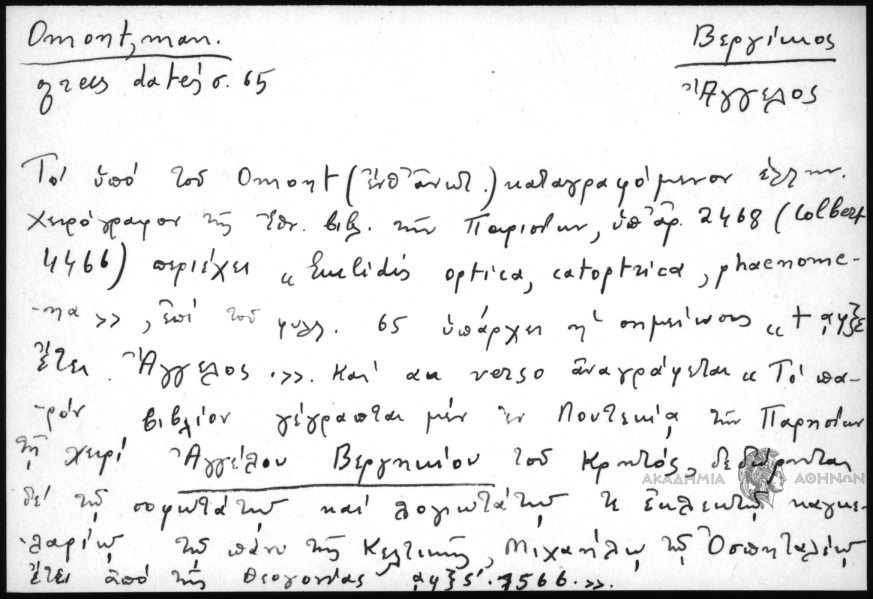 Omont, man.
grecs datés σ. 65
Βεργίκιος
Ἄγγελος
Τό ὑπό τοῦ Omont (ἔνθ' ἀνωτ.) καταγραφόμενον ἑλλην.
χειρόγραφον τῆς Ἐθν. βιβλ. τῶν Παρισίων, ὑπ' ἀρ. 2468 (Colbert
4466) περιέχει « Euclidis optica, catoptrica, phaenome-
-na », ἐπί τοῦ φυλλ. 65 ὑπάρχει ἡ σημείωσις « + ͵αφξϛ
ἔτει. Ἄγγελος.». Καί au verso ἀναγράφεται « Τό πα-
-ρόν βιβλίον γέγραπται μέν ἐν Λουτεκίᾳ τῶν Παρησίων
τῇ χειρί Ἀγγέλου Βεργηκίου τοῦ Κρητός, δεδώρηται
δέ τῷ σοφωτάτῳ καί λογιωτάτῳ κ ἐκλεκτῷ καγκε-
-λαρίῳ τῷ πάνυ τῆς Κελτικῆς, Μιχαήλῳ τῷ Ὀσπηταλίῳ
ἔτει ἀπό τῆς θεογονίας ͵αφξϛ'. 1566.».
ΑΚΑΔΗΜΙΑ ΑΘΗΝΩΝ